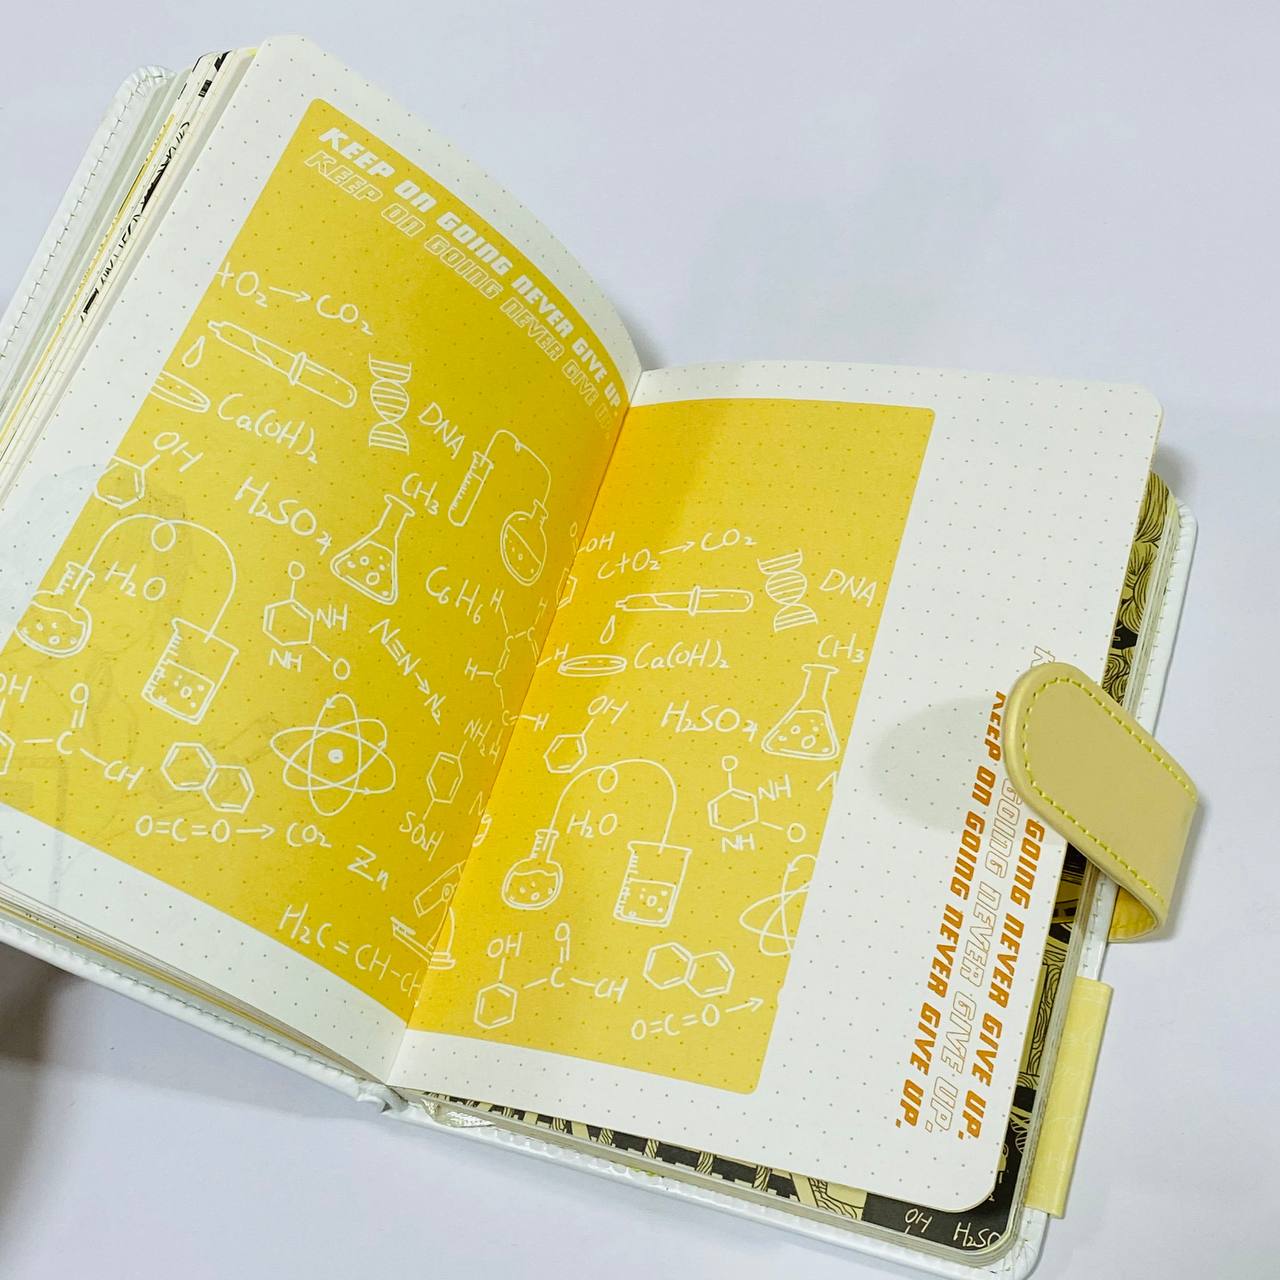 KEEP ON GOING NEVER GIVE UP.
KEEP ON GOING NEVER GIVE UP
+O₂→CO₂
DNA
Ca(OH)₂
OH
CH₃
H₂SO₄
H₂O
C₆H₆
H
NH
NH
O
N≡N→N₂
H
C-H
OH
O
C
CH
NH₂H
SO₂H
O=C=O→CO₂
Zn
H₂C=CH-CH
OH
C+O₂→CO₂
DNA
H
Ca(OH)₂
CH₃
OH
H₂SO₄
NH
NH
O
H₂O
OH
O
C-CH
O=C=O→
GOING NEVER GIVE UP.
GOING NEVER GIVE UP.
KEEP ON GOING NEVER GIVE UP.
OH
H₂SO